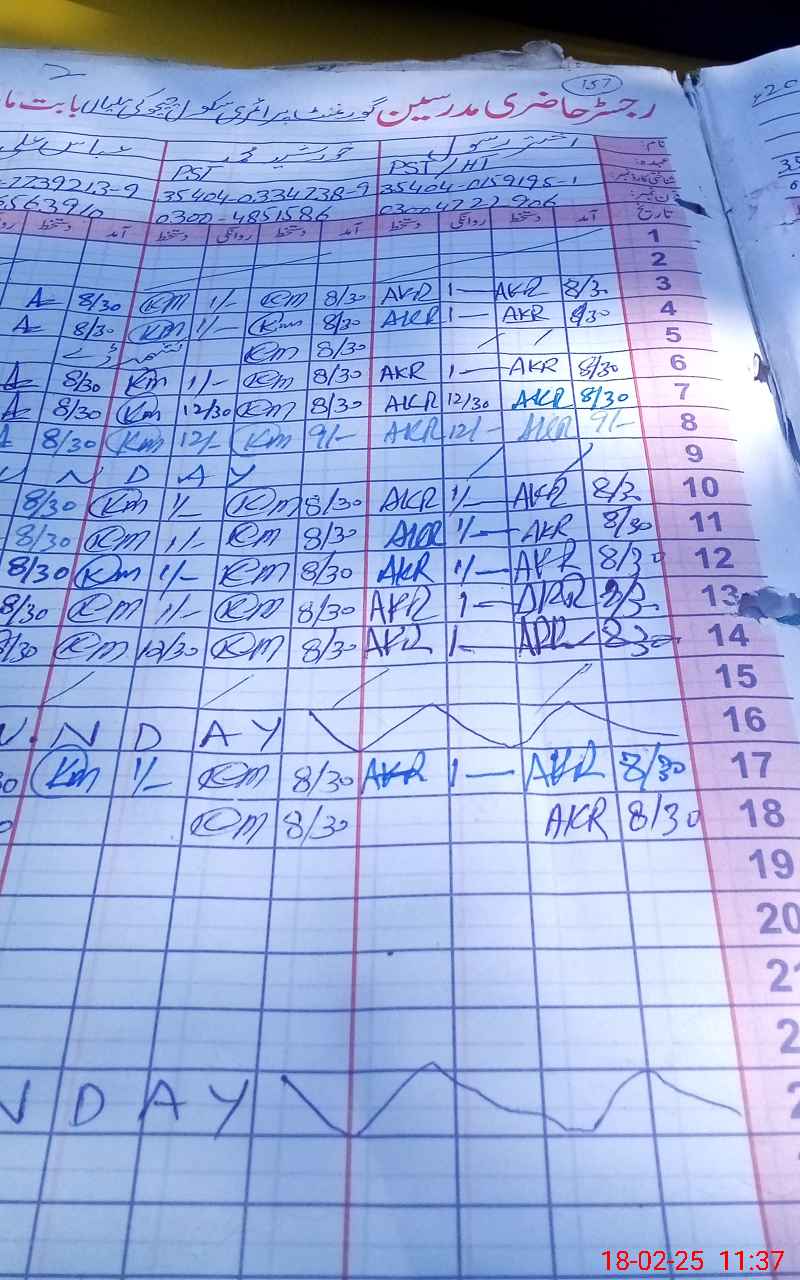 157
رجسٹر حاضری مدرسین گورنمنٹ پرائمری سکول
نام: اختر رسول خورشید محمد عباس علی
عہدہ: PST/HT PST
35404-0159195-1 35404-0334738-9 -7739213-9
0300-4722906 0300-4851586 6563910
تاریخ آمد دستخط روانگی دستخط آمد دستخط روانگی دستخط آمد دستخط
1
2
3 8/30 AKR 1— AKR 8/30 KM 1/- KM 8/30 A
4 8/30 AKR 1— AKR 8/30 KM 1/- KM 8/30 A
5 8/30 KM
6 8/30 AKR 1— AKR 8/30 KM 1/- KM 8/30 A
7 8/30 AKR 12/30 AKR 8/30 KM 12/30 KM 8/30 A
8 9/- AKR 12/- AKR 9/- KM 12/- KM 8/30 A
9 U N D A Y
10 8/30 AKR 1/— AKR 8/30 KM 1/- KM 8/30
11 8/30 AKR 1/— AKR 8/30 KM 1/- KM 8/30
12 8/30 AKR 1/— AKR 8/30 KM 1/- KM 8/30
13 8/30 AKR 1— AKR 8/30 KM 1/- KM 8/30
14 8/30 AKR 1- AKR 8/30 KM 12/30 KM 8/30
15
16 U N D A Y
17 8/30 AKR 1— AKR 8/30 KM 1/- KM
18 8/30 AKR 8/30 KM
19
20
2
2
2 N D A Y
420
18-02-25 11:37